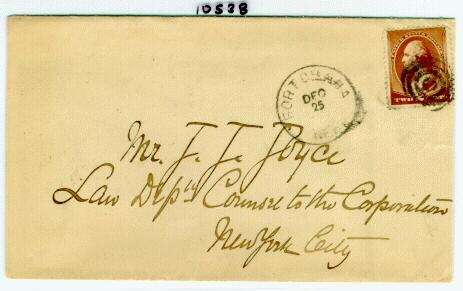 10538
FORT OMAHA
DEC
25
NEB
TWO
Mr. J. J. Joyce
Law Dep't Counsel to the Corporation
New York City